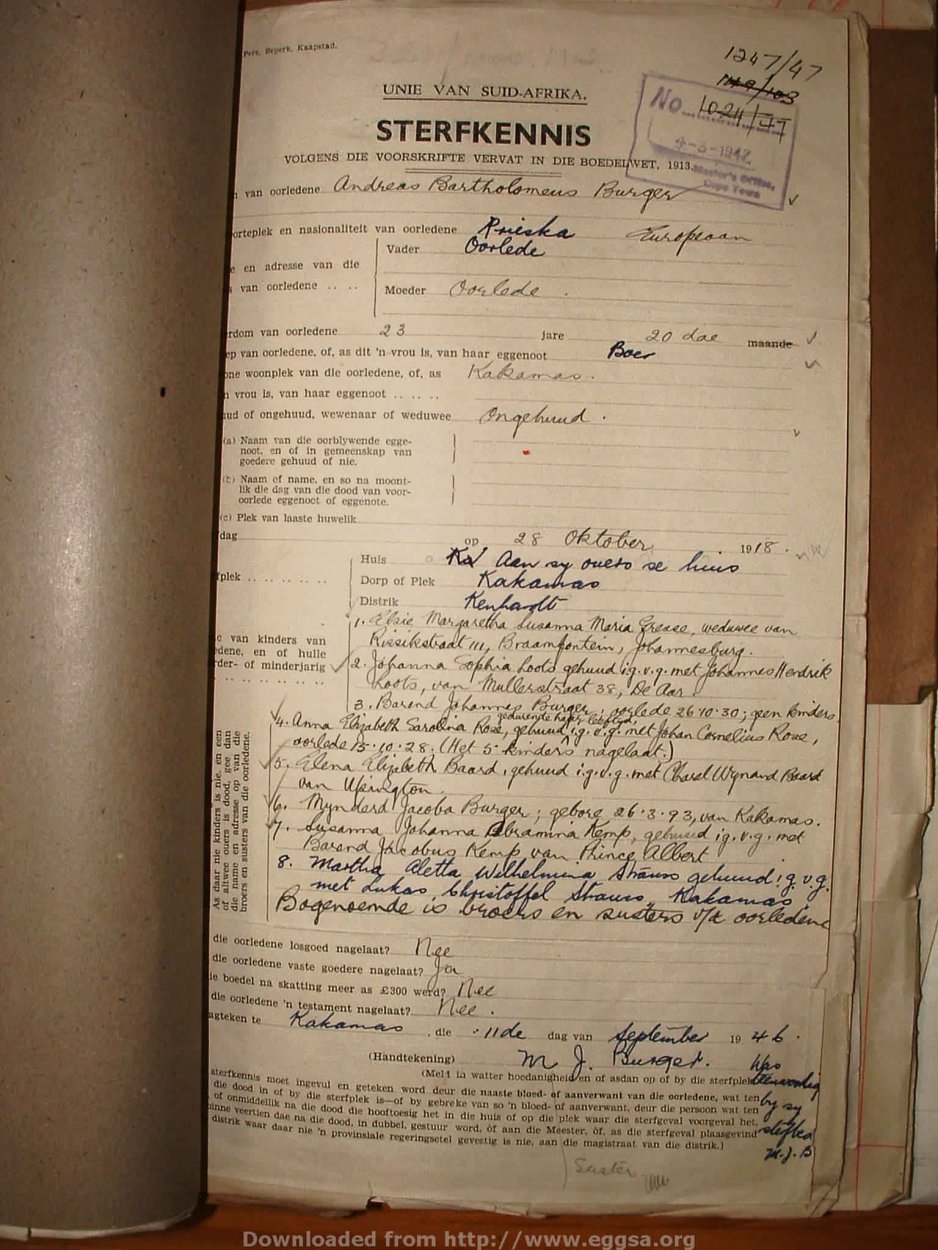 Pers. Beperk, Kaapstad.
1247/47
UNIE VAN SUID-AFRIKA.
No. 1024/47
STERFKENNIS
4-3-1947
VOLGENS DIE VOORSKRIFTE VERVAT IN DIE BOEDELWET, 1913.
Master's Office,
Cape Town
van oorledene Andreas Bartholomeus Burger
orteplek en nasionaliteit van oorledene Prieska Europeaan
Vader Oorlede
e en adresse van die
s van oorledene .. .. Moeder Oorlede.
rdom van oorledene 23 jare 20 dae maande
ep van oorledene, of, as dit 'n vrou is, van haar eggenoot Boer
one woonplek van die oorledene, of, as Kakamas.
n vrou is, van haar eggenoot .. .. ..
ud of ongehuud, wewenaar of weduwee Ongehuud.
(a) Naam van die oorblywende egge-
noot, en of in gemeenskap van
goedere gehuud of nie.
(b) Naam of name, en so na moont-
lik die dag van die dood van voor-
oorlede eggenoot of eggenote.
(c) Plek van laaste huwelik
dag op 28 Oktober 1918.
Huis Aan sy ouers se huis
fplek .. .. .. .. .. Dorp of Plek Kakamas
Distrik Kenhardt
1. Elsie Margaretha Susanna Maria Grease, weduwee van
e van kinders van
Rissikstraat 111, Braamfontein, Johannesburg.
edene, en of hulle
rder- of minderjarig
2. Johanna Sophia Loots gehuud i.g.v.g. met Johannes Hendrik
Loots, van Mullerstraat 38, De Aar.
3. Barend Johannes Burger; oorlede 26.10.30; geen kinders
gedurende haar leeftyd
4. Anna Elizabeth Sarolina Rose, gehuud i.g.v.g. met Johan Cornelius Rose,
oorlede 15.10.28. (Het 5 kinders nagelaat.)
5. Elena Elizabeth Baard, gehuud i.g.v.g. met Charel Wynand Baard
van Upington.
6. Mynderd Jacoba Burger; gebore 26.3.93, van Kakamas.
7. Susanna Johanna Abramina Kemp, gehuud i.g.v.g. met
Barend Jacobus Kemp van Prince Albert
8. Martha Aletta Wilhelmina Strauss gehuud i.g.v.g.
met Lukas Christoffel Strauss, Kakamas.
Bogenoemde is broers en susters v/d oorledene
As daar nie kinders is nie, en een
of altwee ouers is dood, gee dan
die name en adresse op van die
broers en susters van die oorledene.
die oorledene losgoed nagelaat? Nee
die oorledene vaste goedere nagelaat? Ja
ie boedel na skatting meer as £300 werd? Nee
die oorledene 'n testament nagelaat? Nee.
agteken te Kakamas, die 11de dag van September 1946.
(Handtekening) M. J. Burger.
(Meld in watter hoedanigheid en of asdan op of by die sterfplek
Was teenwoordig
by sy
sterfbed
M.J.B
sterfkennis moet ingevul en geteken word deur die naaste bloed- of aanverwant van die oorledene, wat ten
die dood in of by die sterfplek is—of by gebreke van so 'n bloed- of aanverwant, deur die persoon wat ten
of onmiddellik na die dood die hooftoesig het in die huis of op die plek waar die sterfgeval voorgeval het,
inne veertien dae na die dood, in dubbel, gestuur word, óf aan die Meester, óf, as die sterfgeval plaasgevind
distrik waar daar nie 'n provinsiale regeringsetel gevestig is nie, aan die magistraat van die distrik.]
Suster
Downloaded from http://www.eggsa.org